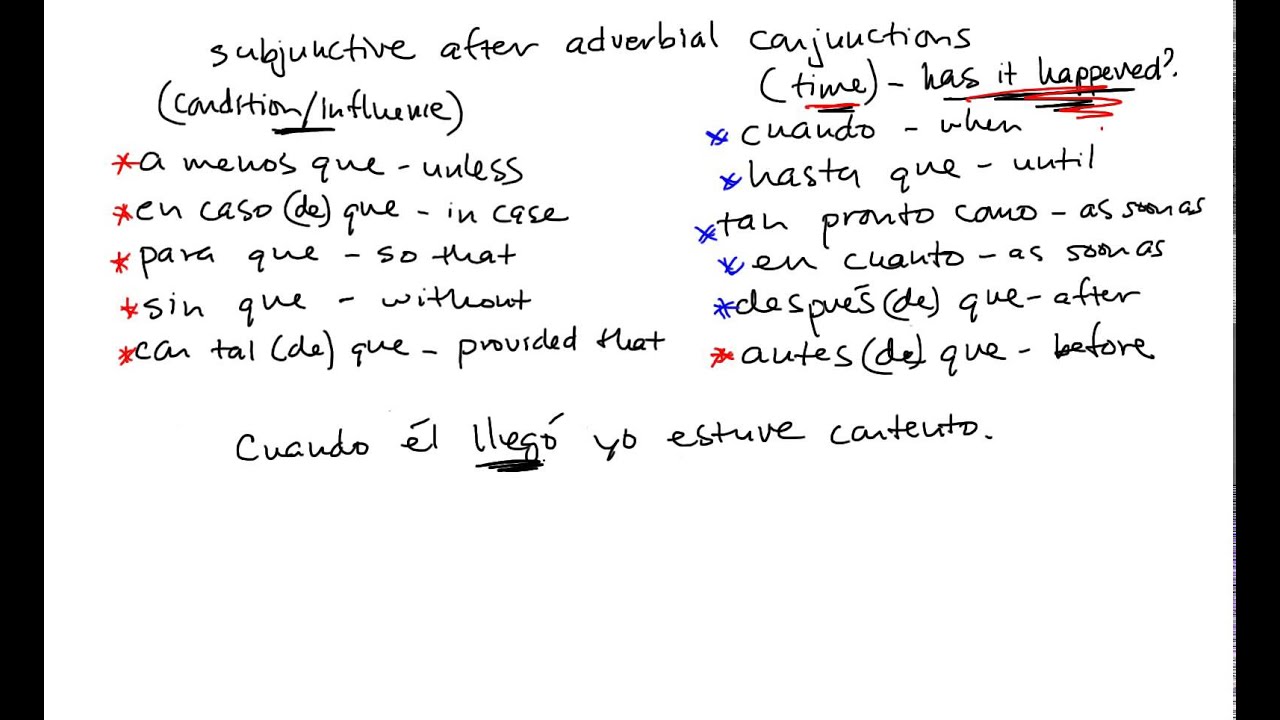 subjunctive after adverbial conjunctions
(condition/influence)
*a menos que - unless
*en caso (de) que - in case
*para que - so that
*sin que - without
*con tal (de) que - provided that
(time) - has it happened?
*cuando - when
*hasta que - until
*tan pronto como - as soon as
*en cuanto - as soon as
*después (de) que - after
*antes (de) que - before
Cuando él llegó yo estuve contento.